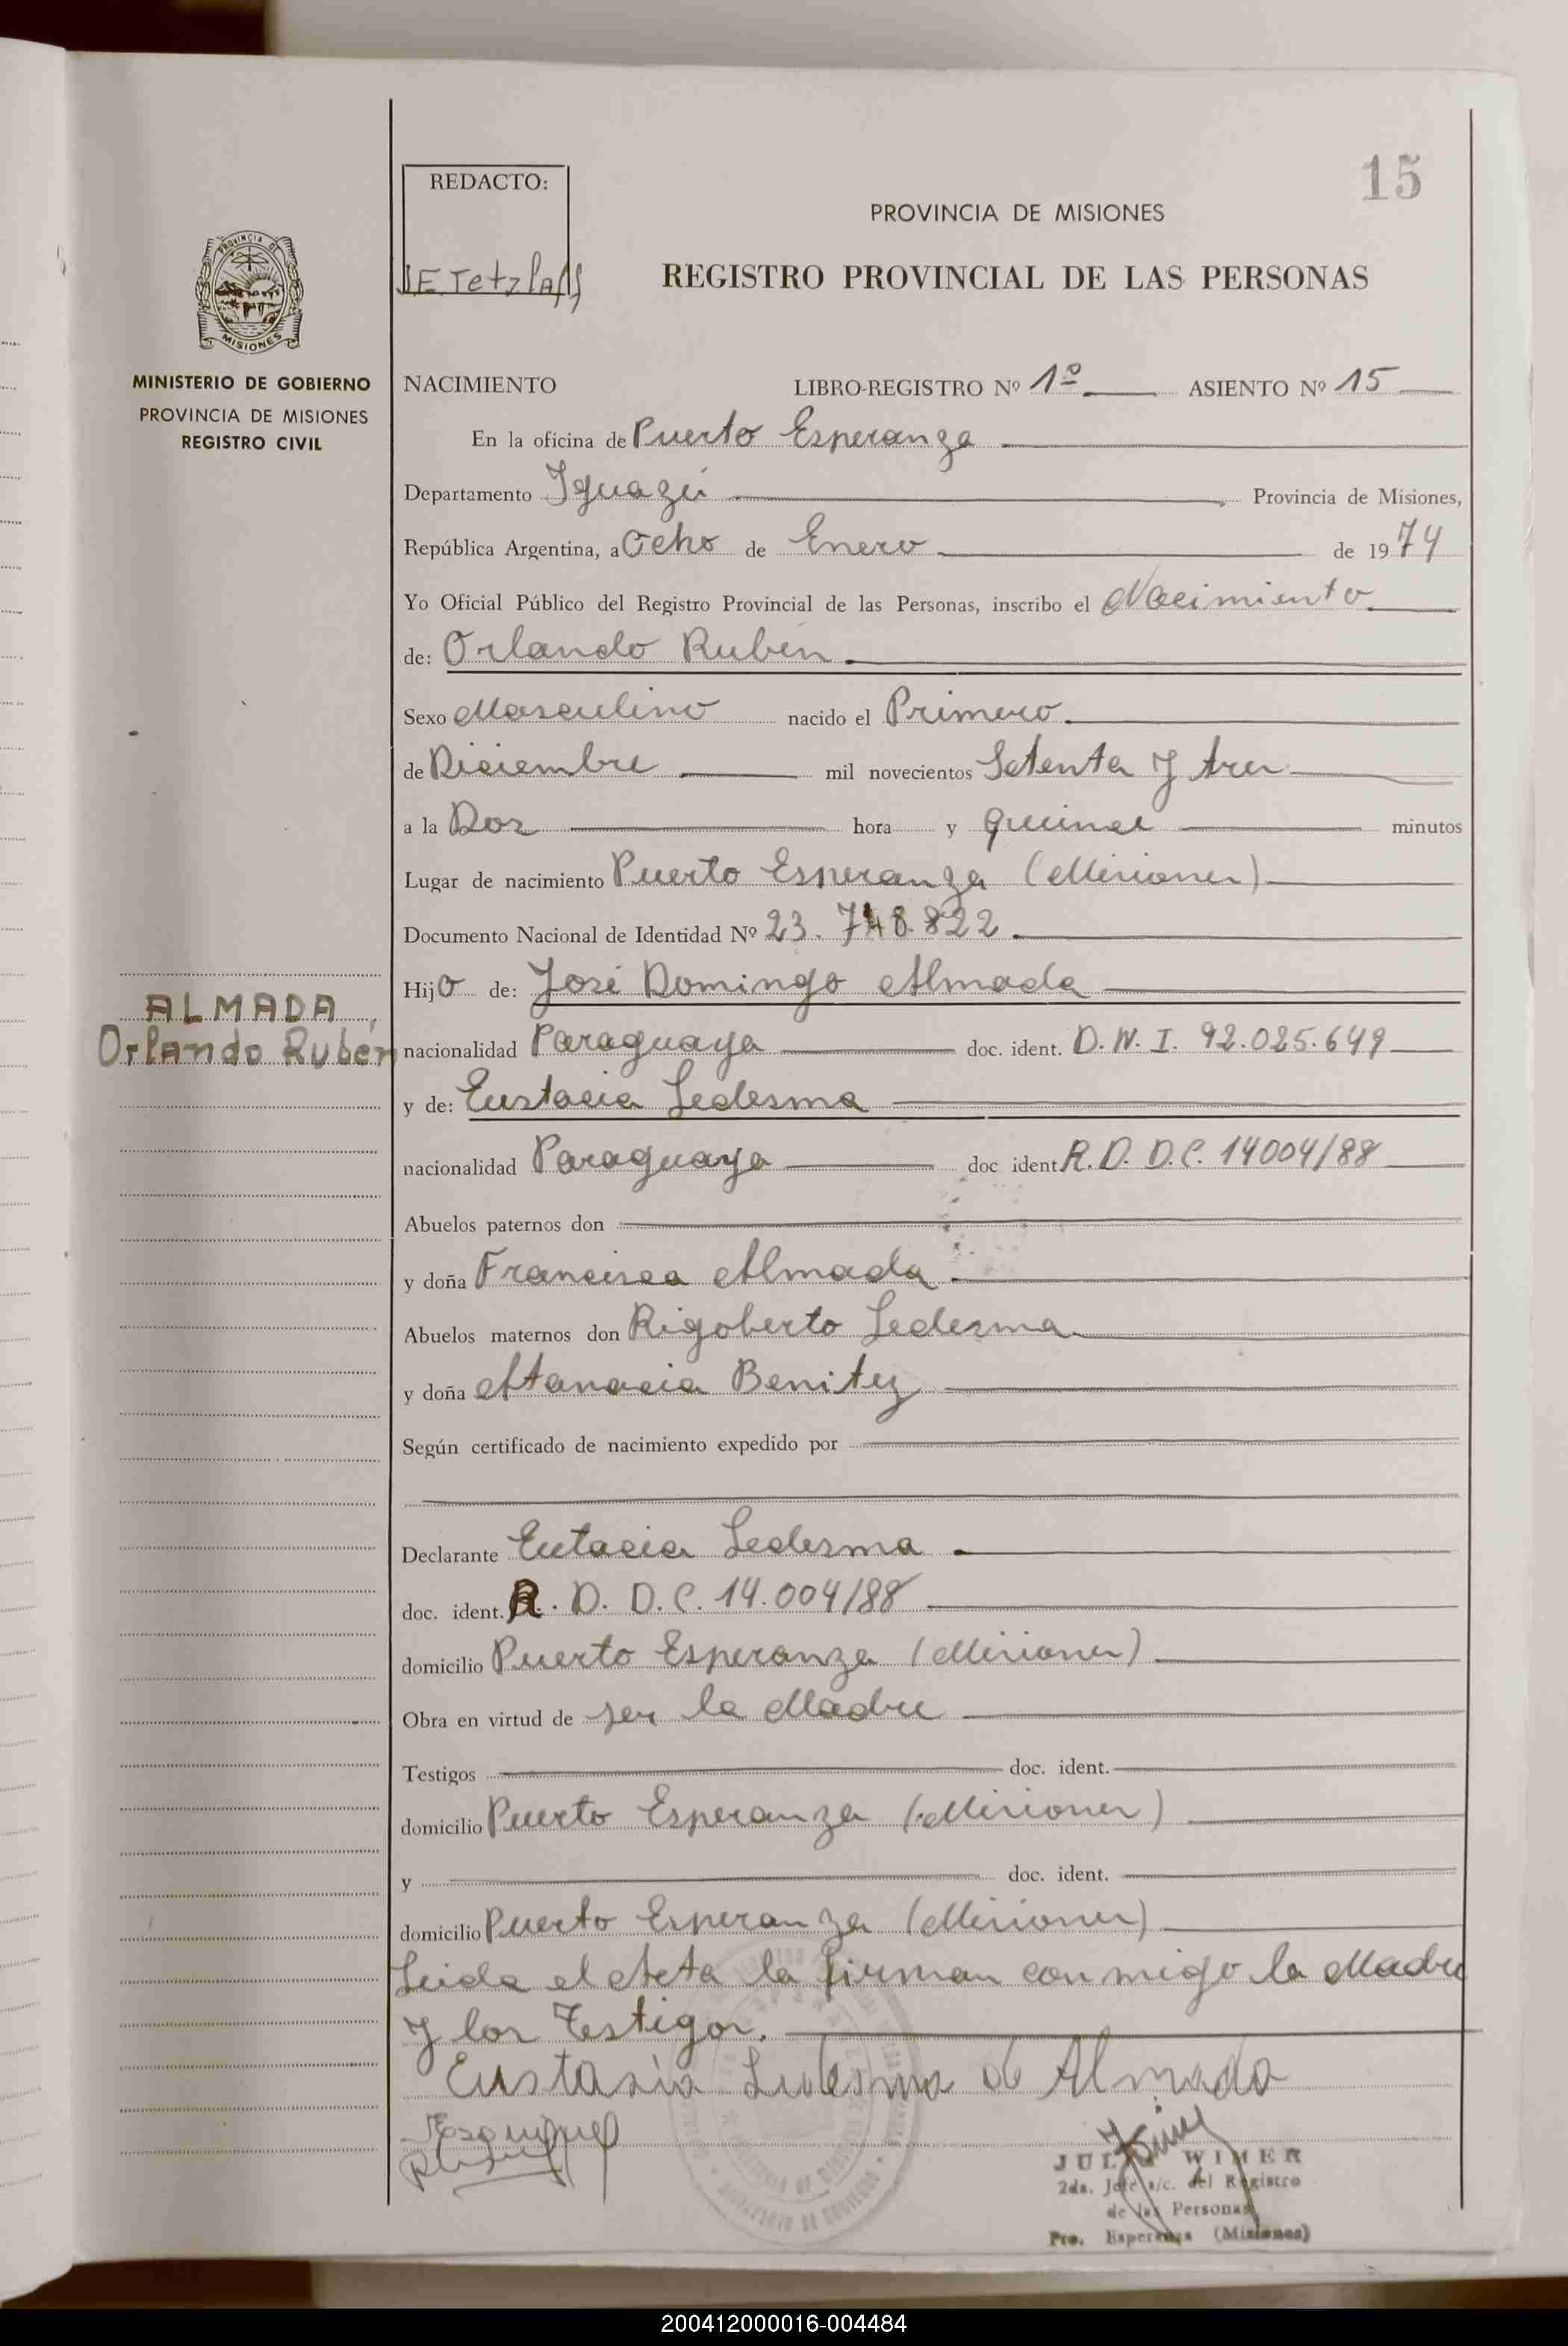 15
REDACTO:
PROVINCIA DE MISIONES
REGISTRO PROVINCIAL DE LAS PERSONAS
PROVINCIA DE
MISIONES
MINISTERIO DE GOBIERNO
PROVINCIA DE MISIONES
REGISTRO CIVIL
NACIMIENTO LIBRO-REGISTRO Nº 1º ASIENTO Nº 15
En la oficina de Puerto Esperanza
Departamento Iguazú Provincia de Misiones,
República Argentina, a Ocho de Enero de 1974
Yo Oficial Público del Registro Provincial de las Personas, inscribo el Nacimiento
de: Orlando Rubén
Sexo Masculino nacido el Primero
de Diciembre mil novecientos Setenta y tres
a la Dos hora y quince minutos
Lugar de nacimiento Puerto Esperanza (Misiones)
Documento Nacional de Identidad Nº 23.748.822
Hijo de: José Domingo Almada
ALMADA,
Orlando Rubén
nacionalidad Paraguaya doc. ident. D.N.I. 92.025.649
y de: Eustacia Ledesma
nacionalidad Paraguaya doc ident. R.D. D.C. 14004/88
Abuelos paternos don
y doña Francisca Almada
Abuelos maternos don Rigoberto Ledesma
y doña Atanacia Benitez
Según certificado de nacimiento expedido por
Declarante Eutacia Ledesma
doc. ident. R. D. D.C. 14.004/88
domicilio Puerto Esperanza (Misiones)
Obra en virtud de ser la Madre
Testigos doc. ident.
domicilio Puerto Esperanza (Misiones)
y doc. ident.
domicilio Puerto Esperanza (Misiones)
Leida el Acta la firman con migo la Madre
y los Testigos.
Eustasia Ledesma de Almada
WIMER
2da. Jefe a/c. del Registro
de las Personas
Pto. Esperanza (Misiones)
200412000016-004484